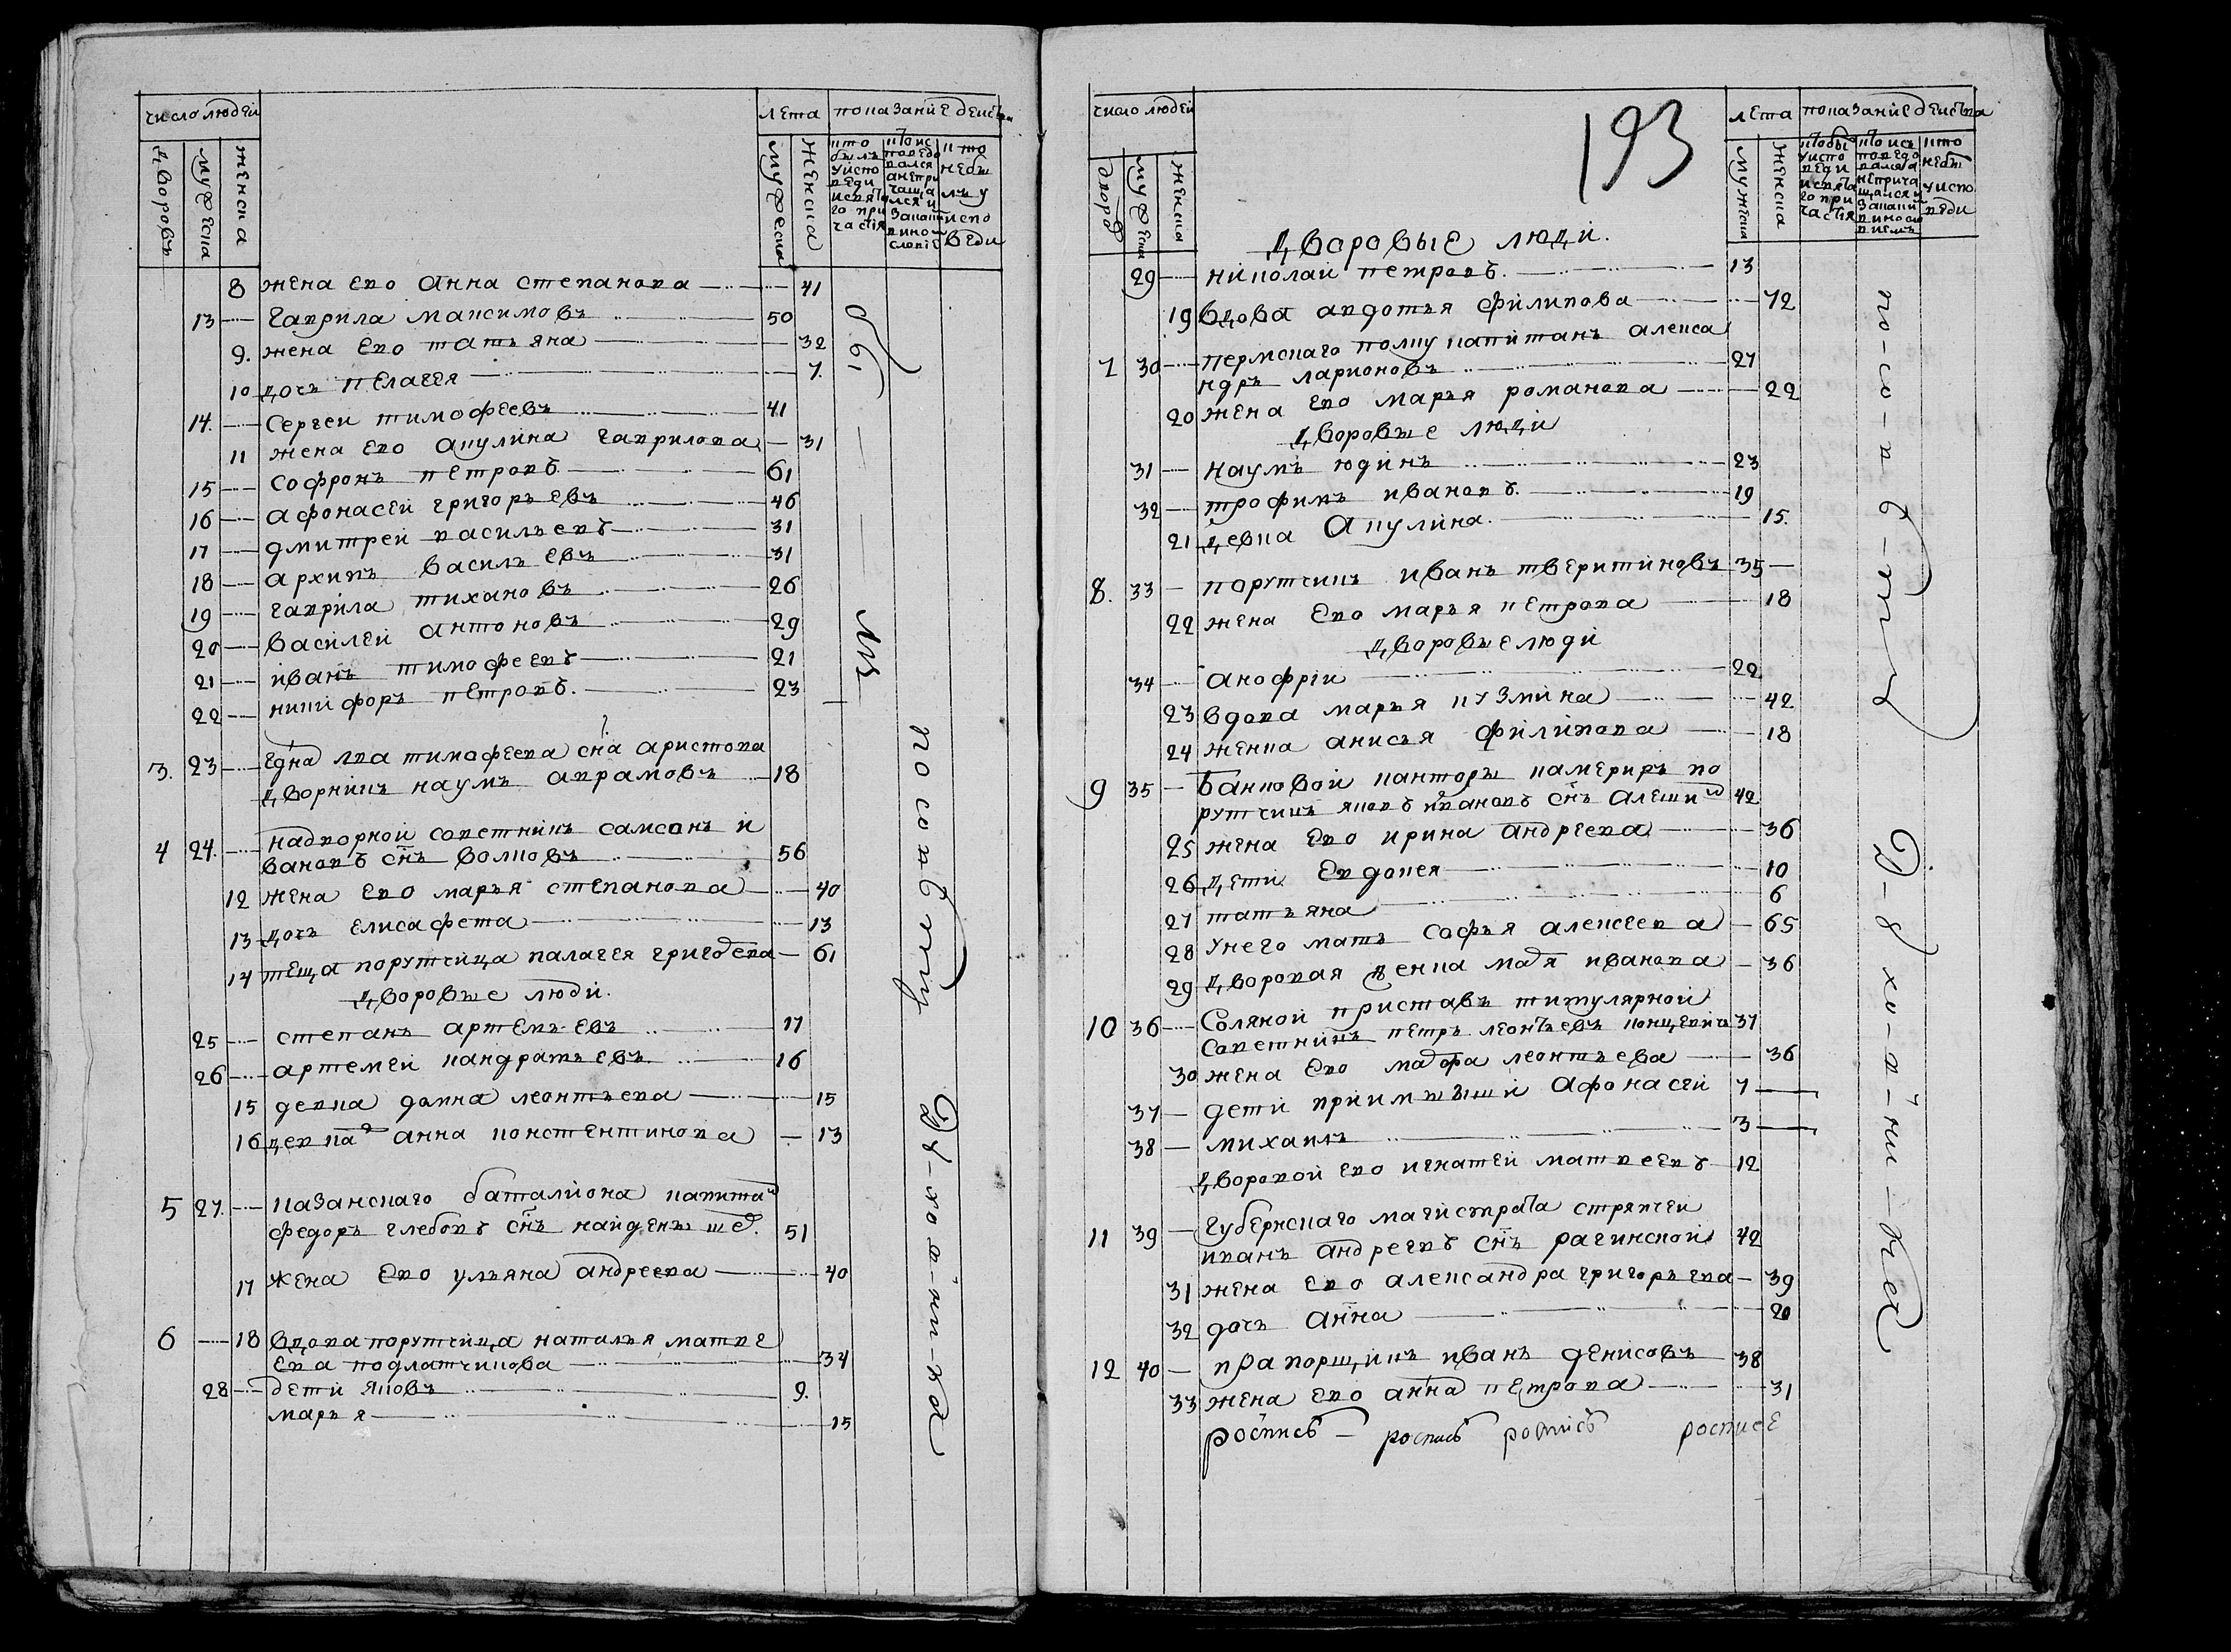 число людей
лета
показание действа
дворовъ
мужеска
женска
мужеска
женска
кто былъ у исповеди и святаго причастия
кто исповедовался а не причащался и за каким виносло
кто не былъ у исповеди
8 жена ево анна степанова 41
13 гаврила максимовъ 50
9. жена ево татьяна 32
10 дочь пелагея 7.
14. сергеи тимофеевъ 41
11 жена ево акулина гаврилова 31
15 софронъ петровъ 61
16 афонасеи григорьевъ 46
17 дмитреи васильевъ 31
18 архипъ васильевъ 31
19 гаврила тихановъ 26
20 василеи антоновъ 29
21 иванъ тимофеевъ 21
22 никифоръ петровъ. 23
3. 23 тимофеева сна аристова
дворникъ наумъ аврамовъ 18
4 24. надворнои советникъ самсонъ и
вановъ снъ волковъ 56
12 жена ево марья степанова 40
13 дочь елисафета 13
14 теща порутчица палагея григорева 61
дворовые люди.
25 степанъ артемьевъ 17
26 артемеи кандратьевъ 16
15 девка домна леонтьева 15
16 девка анна констентинова 13
5 27. казанскаго баталиона капитан
федоръ глебовъ снъ 51
17 жена ево ульяна андреева 40
6 18 вдова порутчица наталья матве
ева подлатчикова 34
28 дети яковъ 9.
марья 15
по совету Духовника
193
число людей
лета
показание действа
дворов
мужеска
женска
мужеска
женска
кто бы у исповеди и свята го причастия
кто исповедовался а не причащался и за каким виносло
кто не бы у исповеди
дворовые люди.
29 николаи петровъ. 13
19 вдова авдотья филипова 72
7 30 пермскаго полку капитанъ алекса
ндръ ларионовъ 27
20 жена ево марья романова 22
дворовые люди
31 наумъ юдинъ 23
32 трофимъ ивановъ. 19
21 девка акулина. 15.
8. 33 порутчикъ иванъ тверитиновъ 35
22 жена ево марья петрова 18
дворовые люди
34 анофрiи 22
23 вдова марья кузмина 42
24 женка анисья филипова 18
9 35 банковои канторы камериръ по
рутчикъ яковъ ивановъ снъ алешин 42
25 жена ево ирина андреева 36
26 дети евдокея 10
27 татьяна 6
28 у него мать софья алексеева 65
29 дворовая женка марья иванова 36
10 36 соляной приставъ титулярнои
советникъ петръ леонтьевъ 37
30 жена ево леонтьева 36
37 дети афонасеи 7
38 михаилъ 3
дворовой ево игнатеи матвеевъ 12
11 39 губернскаго магистрата стряпчеи
иванъ андреевъ снъ рагинской 42
31 жена ево александра григорьева 39
32 дочь анна 20
12 40 прапорщикъ иванъ денисовъ 38
33 жена ево анна петрова 31
роспись — роспись роспись росписе
по-со-в-е-ту Д-у-хо-в-ни-ка